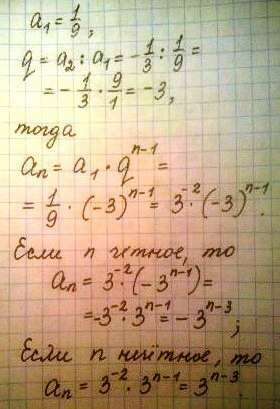 a₁ = 1/9,
q = a₂ : a₁ = -1/3 : 1/9 =
= -1/3 · 9/1 = -3,
тогда
aₙ = a₁ · qⁿ⁻¹ =
= 1/9 · (-3)ⁿ⁻¹ = 3⁻² · (-3)ⁿ⁻¹.
Если n четное, то
aₙ = 3⁻² · (-3ⁿ⁻¹) =
= -3⁻² · 3ⁿ⁻¹ = -3ⁿ⁻³;
Если n нечётное, то
aₙ = 3⁻² · 3ⁿ⁻¹ = 3ⁿ⁻³.